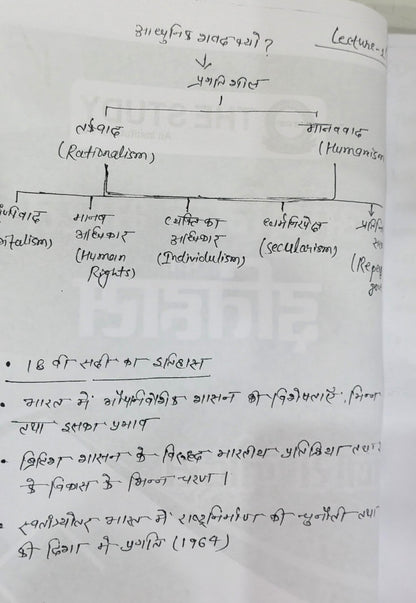 आधुनिक शब्द क्यों ?
Lecture-
प्रगतिशील
तर्कवाद
मानववाद
(Rationalism)
(Humanism
मानव
व्यक्ति का
धर्मनिरपेक्ष
अधिकार
अधिकार
(Secularism)
(Human
(Individulism)
Rights)
THE STUDY
इतिहास
• 18 वी सदी का इतिहास
• भारत में औपनिवेशिक शासन की विशेषताएँ, भिन्न
तथा इसका प्रभाव
• ब्रिटिश शासन के विरुद्ध भारतीय प्रतिक्रिया तथा
के विकास के भिन्न चरण ।
• स्वतंत्र्योतर भारत में राष्ट्रनिर्माण की चुनौती तथा
की दिशा में प्रगति (1964)